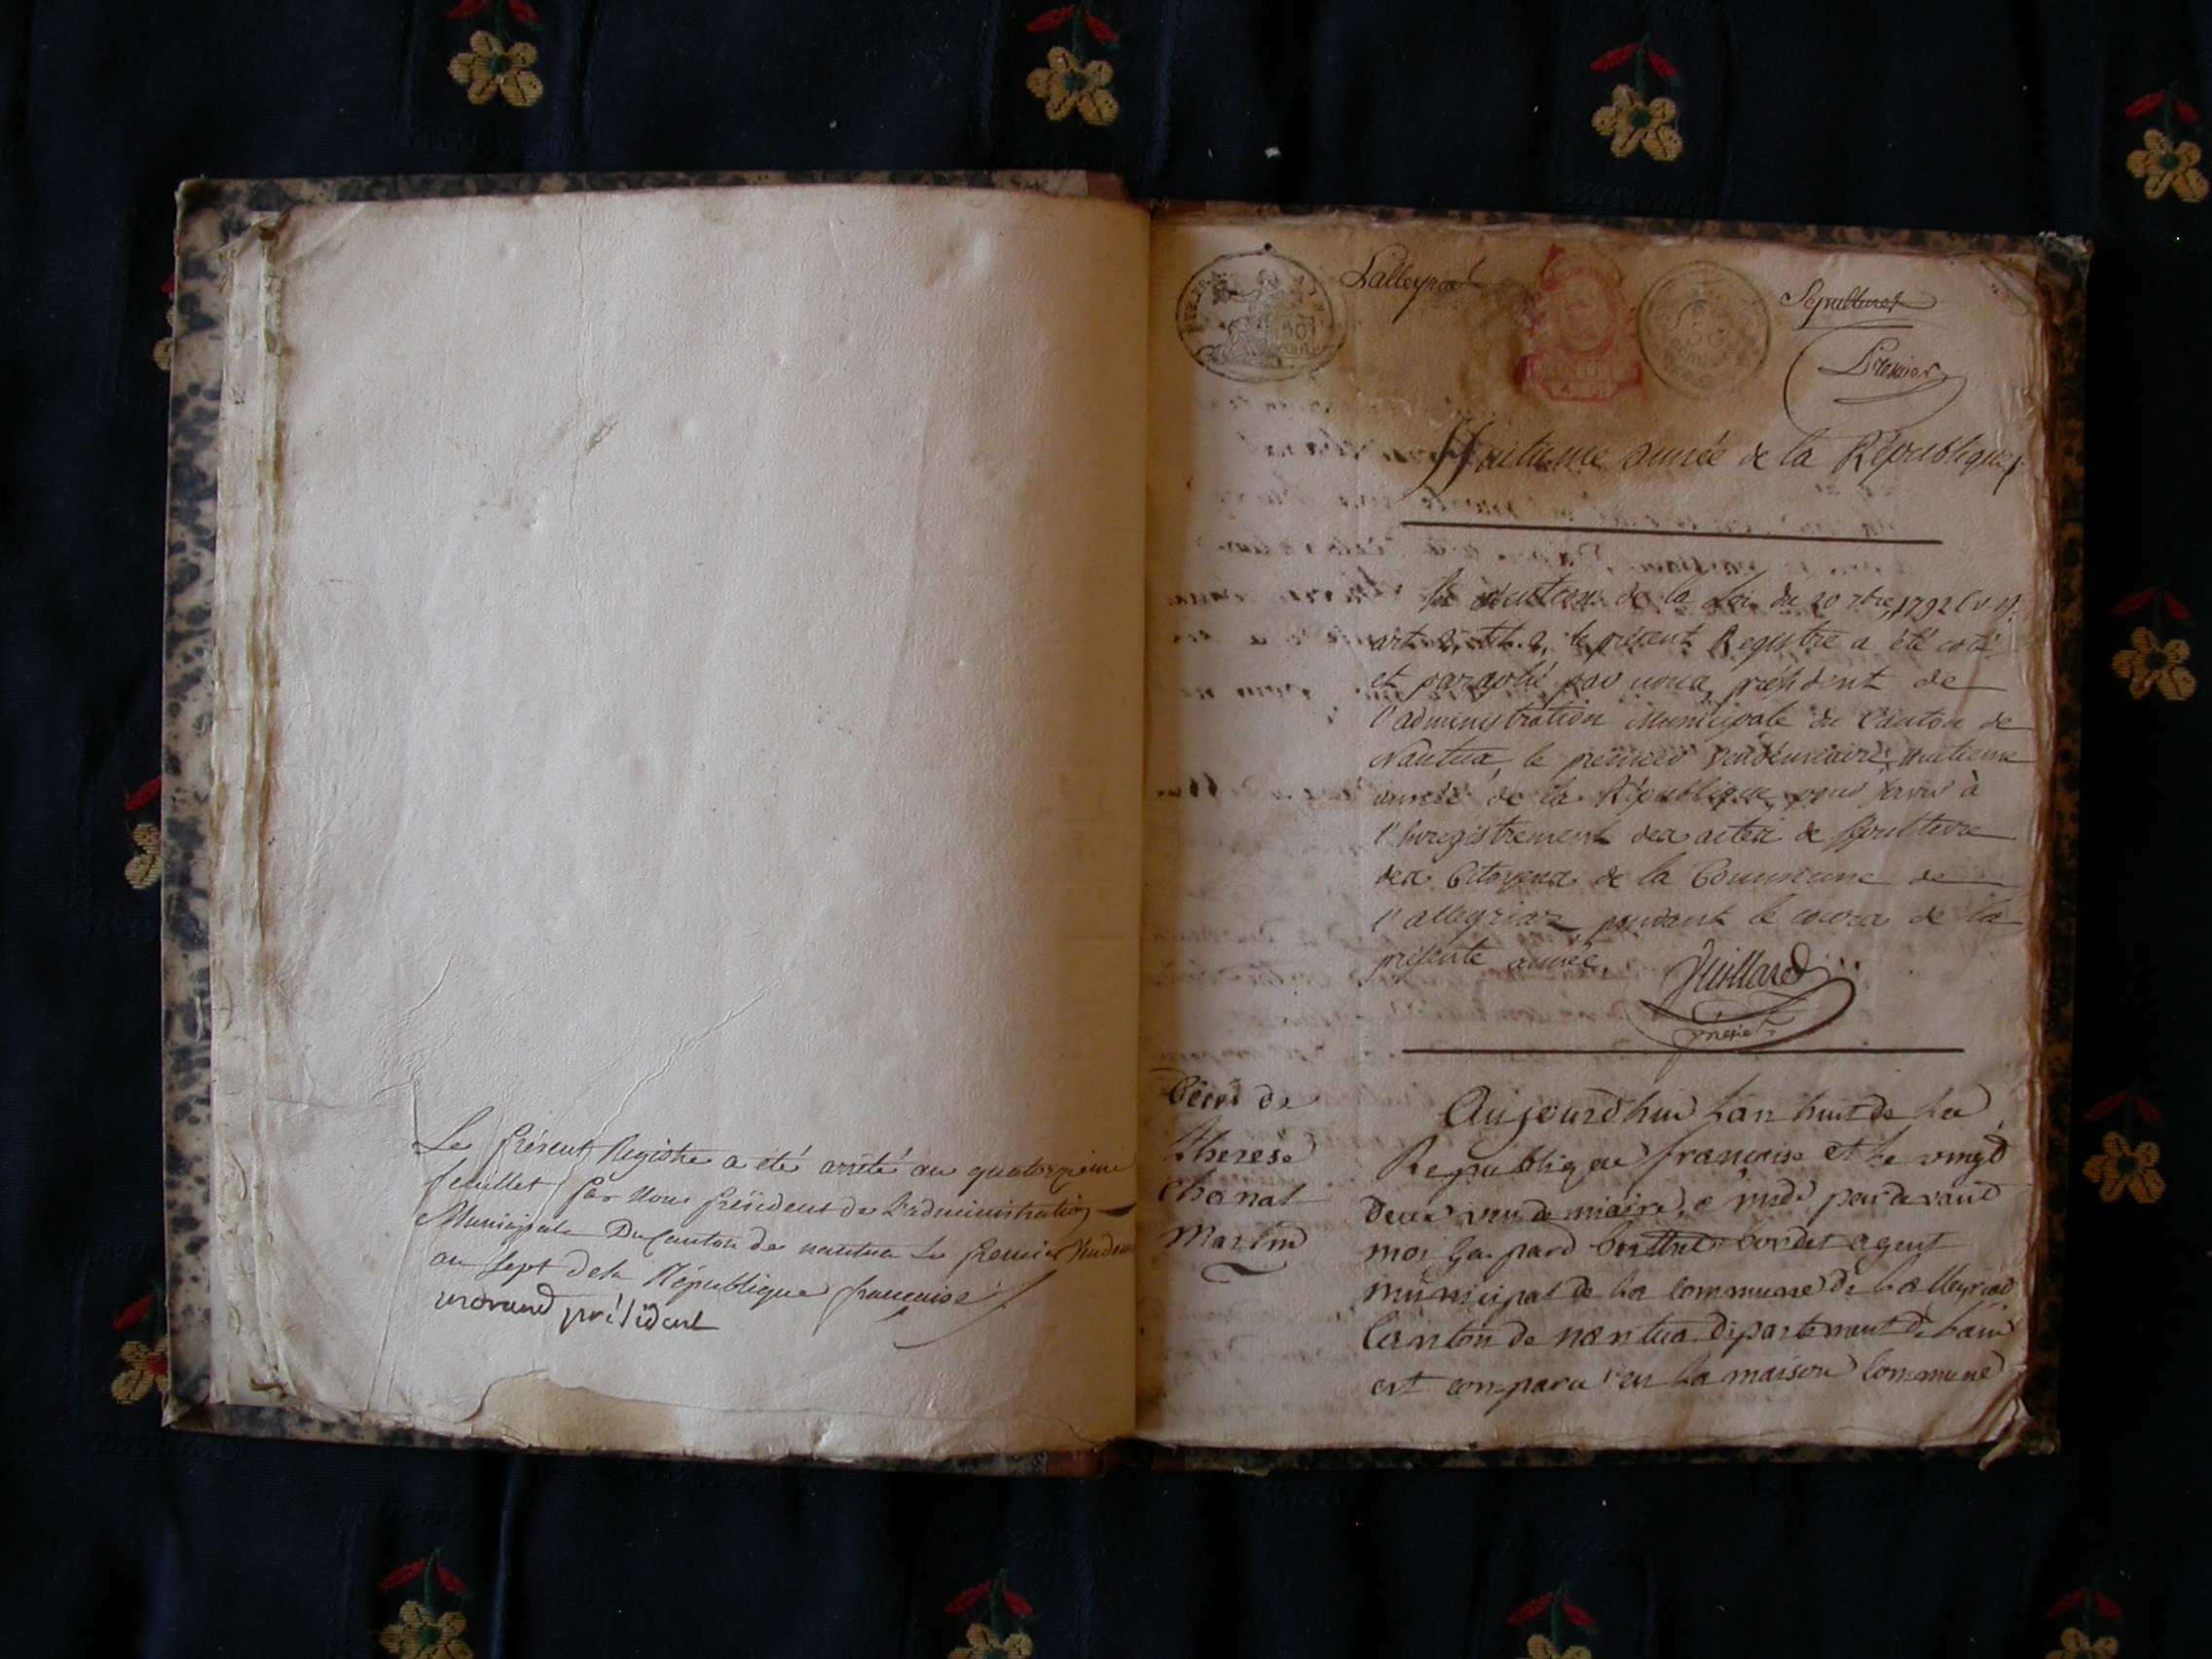 Le présent Registre a été arrêté au quatorzieme
feuillet par Nous président de L'administration
Municipale Du Canton de nantua Le premier Vendem
an sept de la République francaise
morand président
Lalleyriat
Sepultures
Premier
Huitieme année de la République
En execution de la Loi du 20 7bre 1792 (v. s).
art. 2, tit. 2, le présent Registre a été coté
et paraphé par nous, président de
l'administration Municipale du Canton de
Nantua, le premier vendemiaire, huitieme
année de la République, pour servir à
l'Enregistrement des actes de sépulture
des Citoyens de la Commune de
l'alleyriaz pendant le cours de la
présente année.
Juillard
présidt
Décès de
therese
chanal
Martin
Aujourdhui Lan huit de La
Republique francaise et Le vingt
deux vendemiaire, a midi pardevant
moi Gaspard bordet agent
municipal de La Commune de Lalleyriat
Canton de nantua departement de Lain
est comparu en La maison Commune